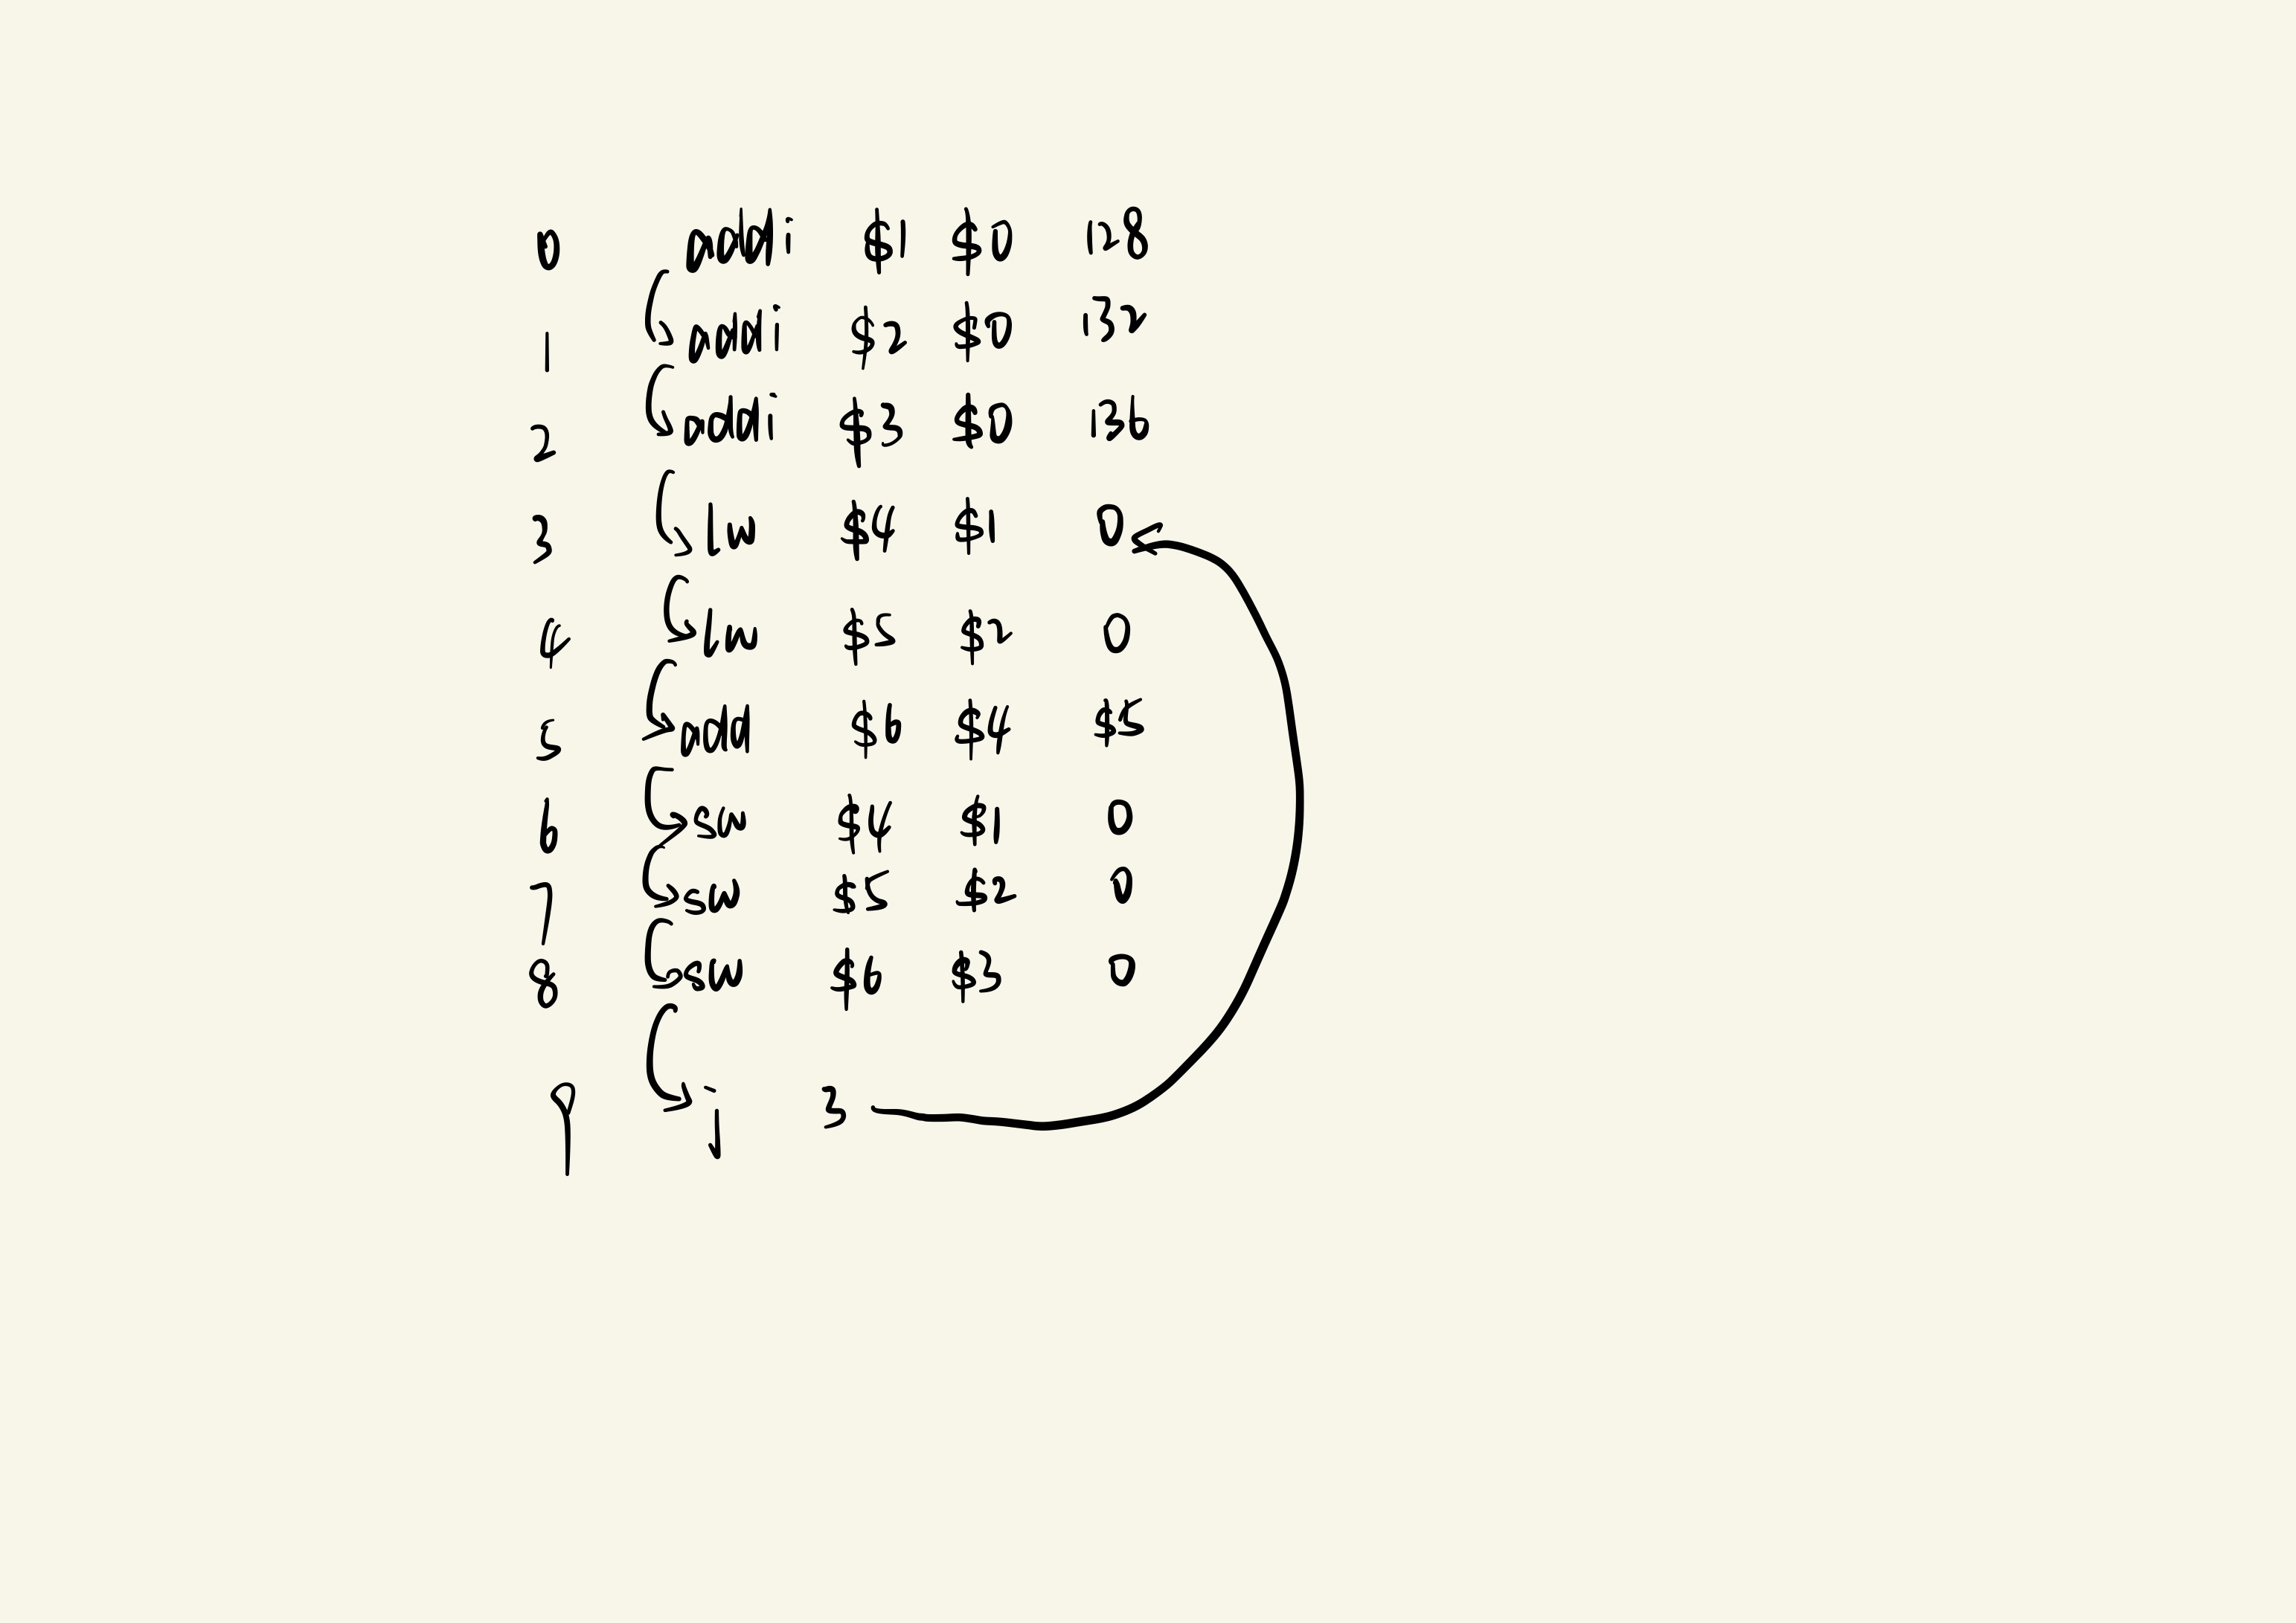 0 addi $1 $0 128
1 addi $2 $0 132
2 addi $3 $0 136
3 lw $4 $1 0
4 lw $5 $2 0
5 add $6 $4 $5
6 sw $4 $1 0
7 sw $5 $2 0
8 sw $6 $3 0
9 j 3